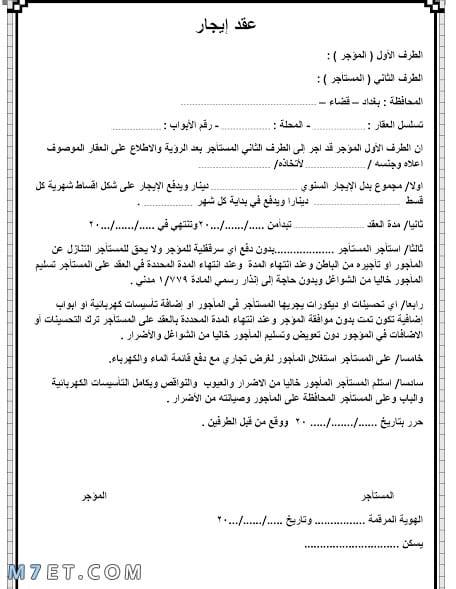 عقد إيجار
الطرف الأول ( المؤجر ) :
الطرف الثاني ( المستأجر ) :
المحافظة : بغداد – قضاء – ........................................
تسلسل العقار : .................. - المحلة : ................ - رقم الأبواب : ................
ان الطرف الأول المؤجر قد اجر إلى الطرف الثاني المستأجر بعد الرؤية والاطلاع على العقار الموصوف
اعلاه وجنسه / ........................ لأتخاذه/ ........................
اولا/ مجموع بدل الإيجار السنوي ........................ دينار ويدفع الإيجار على شكل اقساط شهرية كل
قسط ........................ دينارا ويدفع في بداية كل شهر .................. .
ثانيا/ مدة العقد .................. تبدأمن ...../....../...٢٠وتنتهي في ...../....../...٢٠
ثالثا/ أستأجر المستأجر ..................بدون دفع أي سرقفلية للمؤجر ولا يحق للمستأجر التنازل عن
المأجور او تأجيره من الباطن وعند انتهاء المدة وعند انتهاء المدة المحددة في العقد على المستأجر تسليم
المأجور خاليا من الشواغل وبدون حاجة إلى إنذار رسمي المادة ١/٧٧٩ مدني .
رابعا/ أي تحسينات او ديكورات يجريها المستأجر في المأجور او إضافة تأسيسات كهربائية او ابواب
إضافية تكون تمت بدون موافقة المؤجر وعند انتهاء المدة المحددة بالعقد على المستأجر ترك التحسينات أو
الاضافات في المؤجور دون تعويض وتسليم المأجور خاليا من الشواغل والأضرار .
خامسا/ على المستأجر استغلال المأجور لغرض تجاري مع دفع قائمة الماء والكهرباء.
سادسا/ استلم المستأجر المأجور خاليا من الاضرار والعيوب والنواقص وبكامل التأسيسات الكهربائية
والباب وعلى المستأجر المحافظة على المأجور وصيانته من الأضرار .
حرر بتاريخ ....../......./..... ٢٠ ووقع من قبل الطرفين .
المستأجر المؤجر
الهوية المرقمة ................ وتاريخ ...../....../...٢٠
يسكن ..............................
M7ET.COM